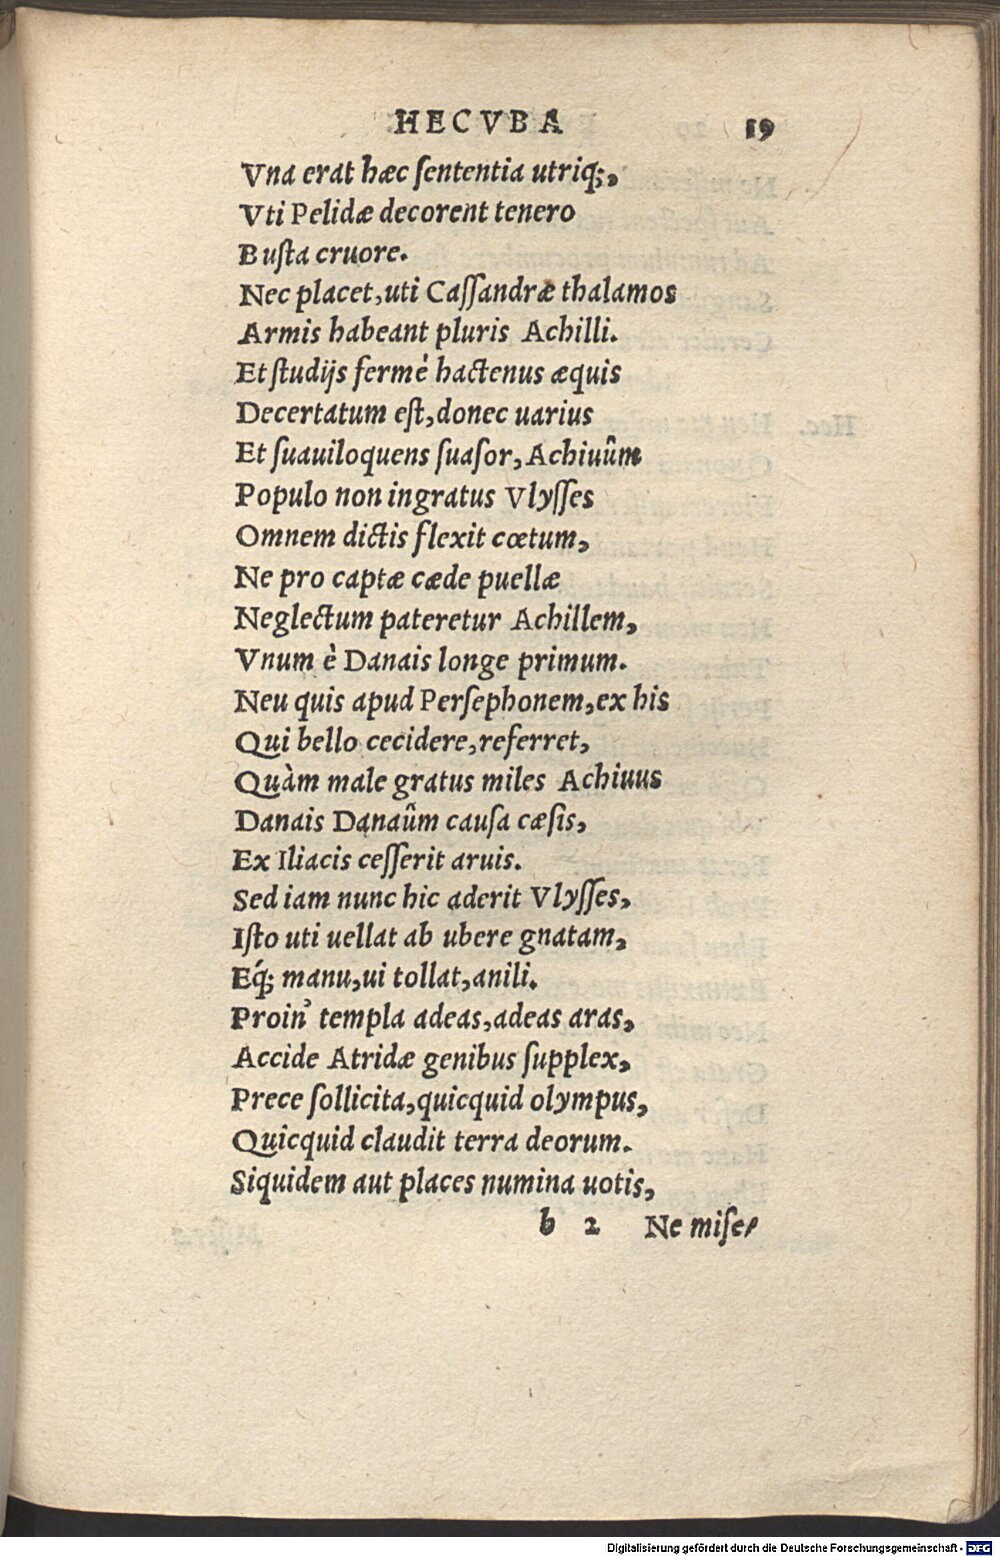 HECVBA 19
Vna erat hæc ſententia utriq́;,
Vti Pelidæ decorent tenero
Buſta cruore.
Nec placet,uti Caſſandræ thalamos
Armis habeant pluris Achilli.
Et ſtudijs fermè hactenus æquis
Decertatum eſt,donec uarius
Et ſuauiloquens ſuaſor,Achiuûm
Populo non ingratus Vlyſſes
Omnem dictis flexit cœtum,
Ne pro captæ cæde puellæ
Neglectum pateretur Achillem,
Vnum è Danais longe primum.
Neu quis apud Perſephonem,ex his
Qui bello cecidere,referret,
Quàm male gratus miles Achiuus
Danais Danaûm cauſa cæſis,
Ex Iliacis ceſſerit aruis.
Sed iam nunc hic aderit Vlyſſes,
Iſto uti uellat ab ubere gnatam,
Eq́; manu,ui tollat,anili.
Proin' templa adeas,adeas aras,
Accide Atridæ genibus ſupplex,
Prece ſollicita,quicquid olympus,
Quicquid claudit terra deorum.
Siquidem aut places numina uotis,
b 2 Ne miſe-
Digitalisierung gefördert durch die Deutsche Forschungsgemeinschaft - DFG